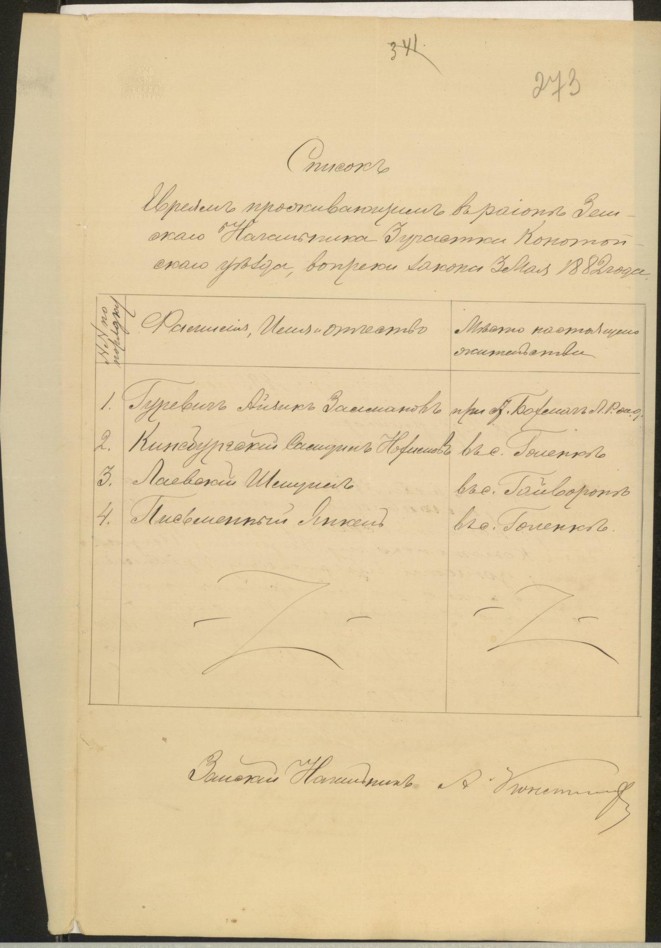 341
273
Списокъ
Евреямъ проживающимъ въ районѣ Зем-
скаго Начальника 3 участка Конотоп-
скаго уѣзда, вопреки закона 3 Мая 1882 года.
№№ по порядку
Фамилія, Имя и отчество
Мѣсто настоящаго
жительства
1. Гуревичъ Айзикъ Залмановъ при ст. Бахмачъ
2. Кинбургский въ с. Голенкѣ
3. Лаевскій Шмуилъ въ с. Гайворонѣ
4. Письменный Янкель въ с. Голенкѣ.
Земскій Начальникъ А.